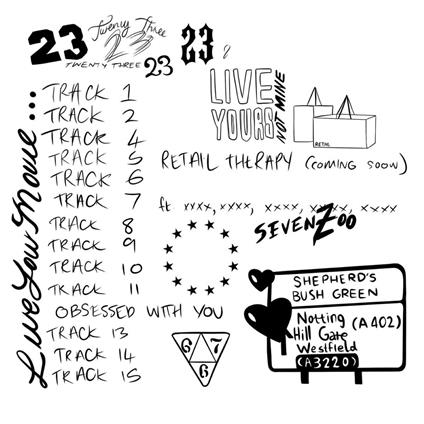 23
Twenty Three
23
TWENTY THREE
23
23
Live Your Movie...
TRACK 1
TRACK 2
TRACK 4
TRACK 5
TRACK 6
TRACK 7
TRACK 8
TRACK 9
TRACK 10
TRACK 11
OBSESSED WITH YOU
TRACK 13
TRACK 14
TRACK 15
LIVE
YOURS
NOT MINE
RETAIL
RETAIL THERAPY (COMING SOON)
ft xxxx, xxxx, xxxx, xxxx, xxxx
SEVENZOO
SHEPHERD'S
BUSH GREEN
Notting (A402)
Hill Gate
Westfield
(A3220)
6 7
6